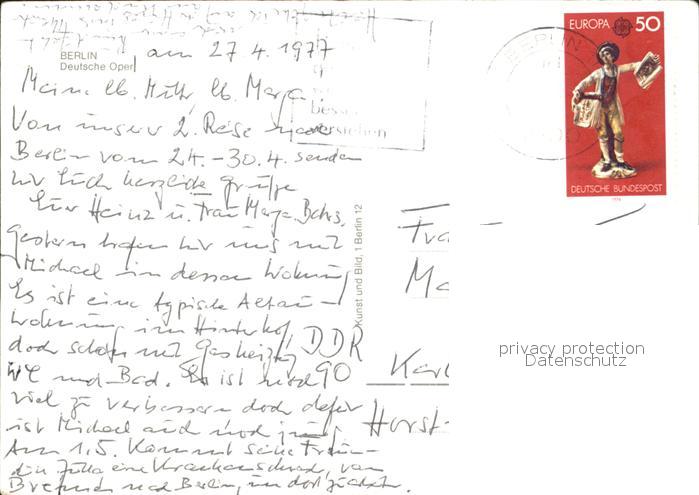 BERLIN
Deutsche Oper
am 27.4.1977
Meine lb. Mutti, lb. Marga
Von unserer 2. Reise nach
Berlin vom 24.-30.4. senden
wir Euch herzliche Grüße
Eur Heinz u. Frau Marga
Gestern trafen wir uns mit
Michael in dessen Wohnung
Es ist eine typische Altbau-
wohnung im Hinterhof,
doch schon mit Gasheizung
WC und Bad. Es ist noch
viel zu verbessern doch dafür
ist Michael auch noch jung
Am 1.5. kommt seine Freun-
din Jutta eine Krankenschw., von
Bremen nach Berlin, um dort zu
besser
verstehen
BERLIN
EUROPA 50
DEUTSCHE BUNDESPOST
1976
Kunst und Bild, 1 Berlin 12
Fra
Ma
DDR
90 Karl
Horst-
privacy protection
Datenschutz